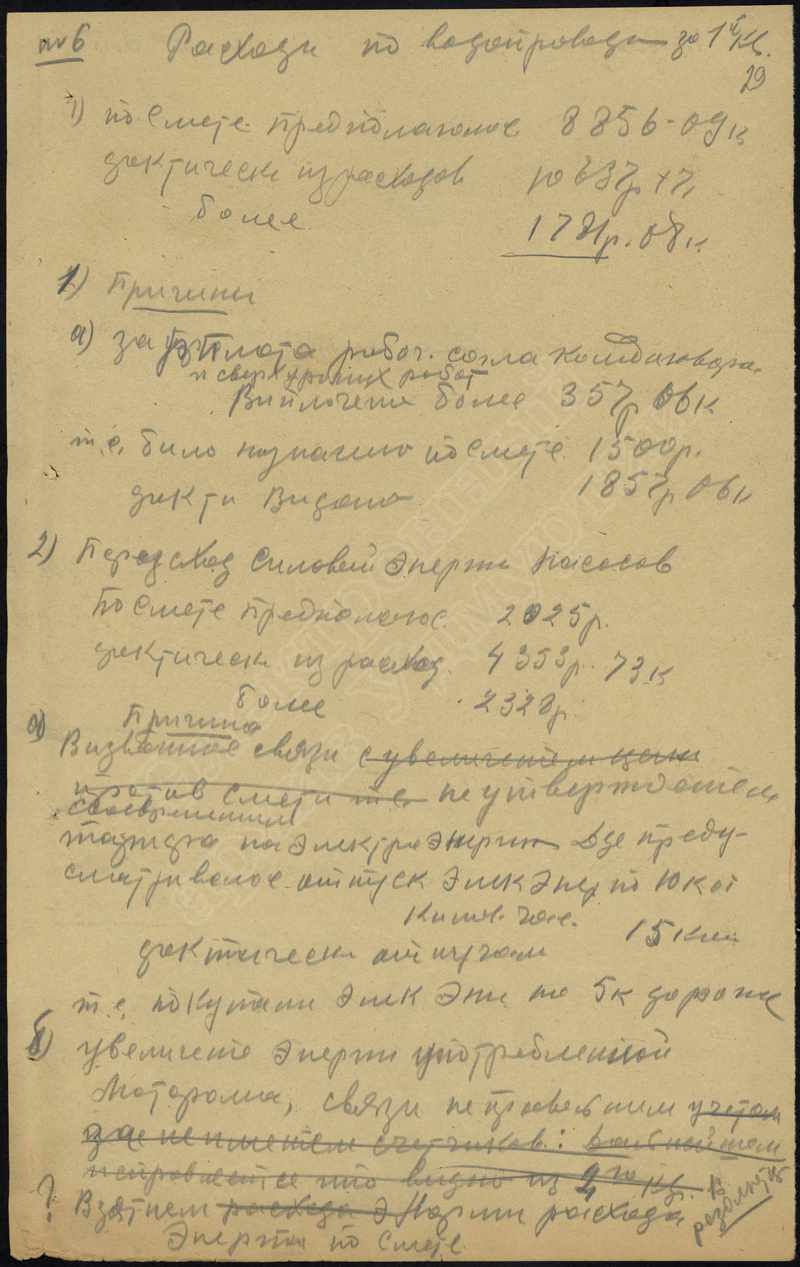 № 6 Расходы по водопроводу за 1й Кв.
29
1) по смете предполагалось 8856-09к
фактически израсходов 10637р 17к
более 1781р. 08к
1) Причины
а) за уплота рабоч. согла Колдоговора
и сверхурочных работ
Выплочено более 357р 06к
т.е. было назначено по смете 1500р.
факти Видано 1857р 06к
2) Перерасход силовой Энерги Насосов
По смете предполаж. 2025р.
фактически израсход. 4353р. 73к
более 2328р.
Причина
а) Визванное связи с увеличением цени
против смети т.е. не утверждением
своевременним
тарифа на Электроэнергию где преду-
сматривалось отпуск Элек Энер по 10к от
Килов. час.
фактически отпускали 15 коп
т.е. покупали Элек Эне на 5к дороже
б) увеличение Энерги употребленной
Моторами, связи неправельним учетом
за неимением счетчиков:
исправляется что видно из 2го кв. В
? Взятием расхода Э Норми расхода
Энергии по смете